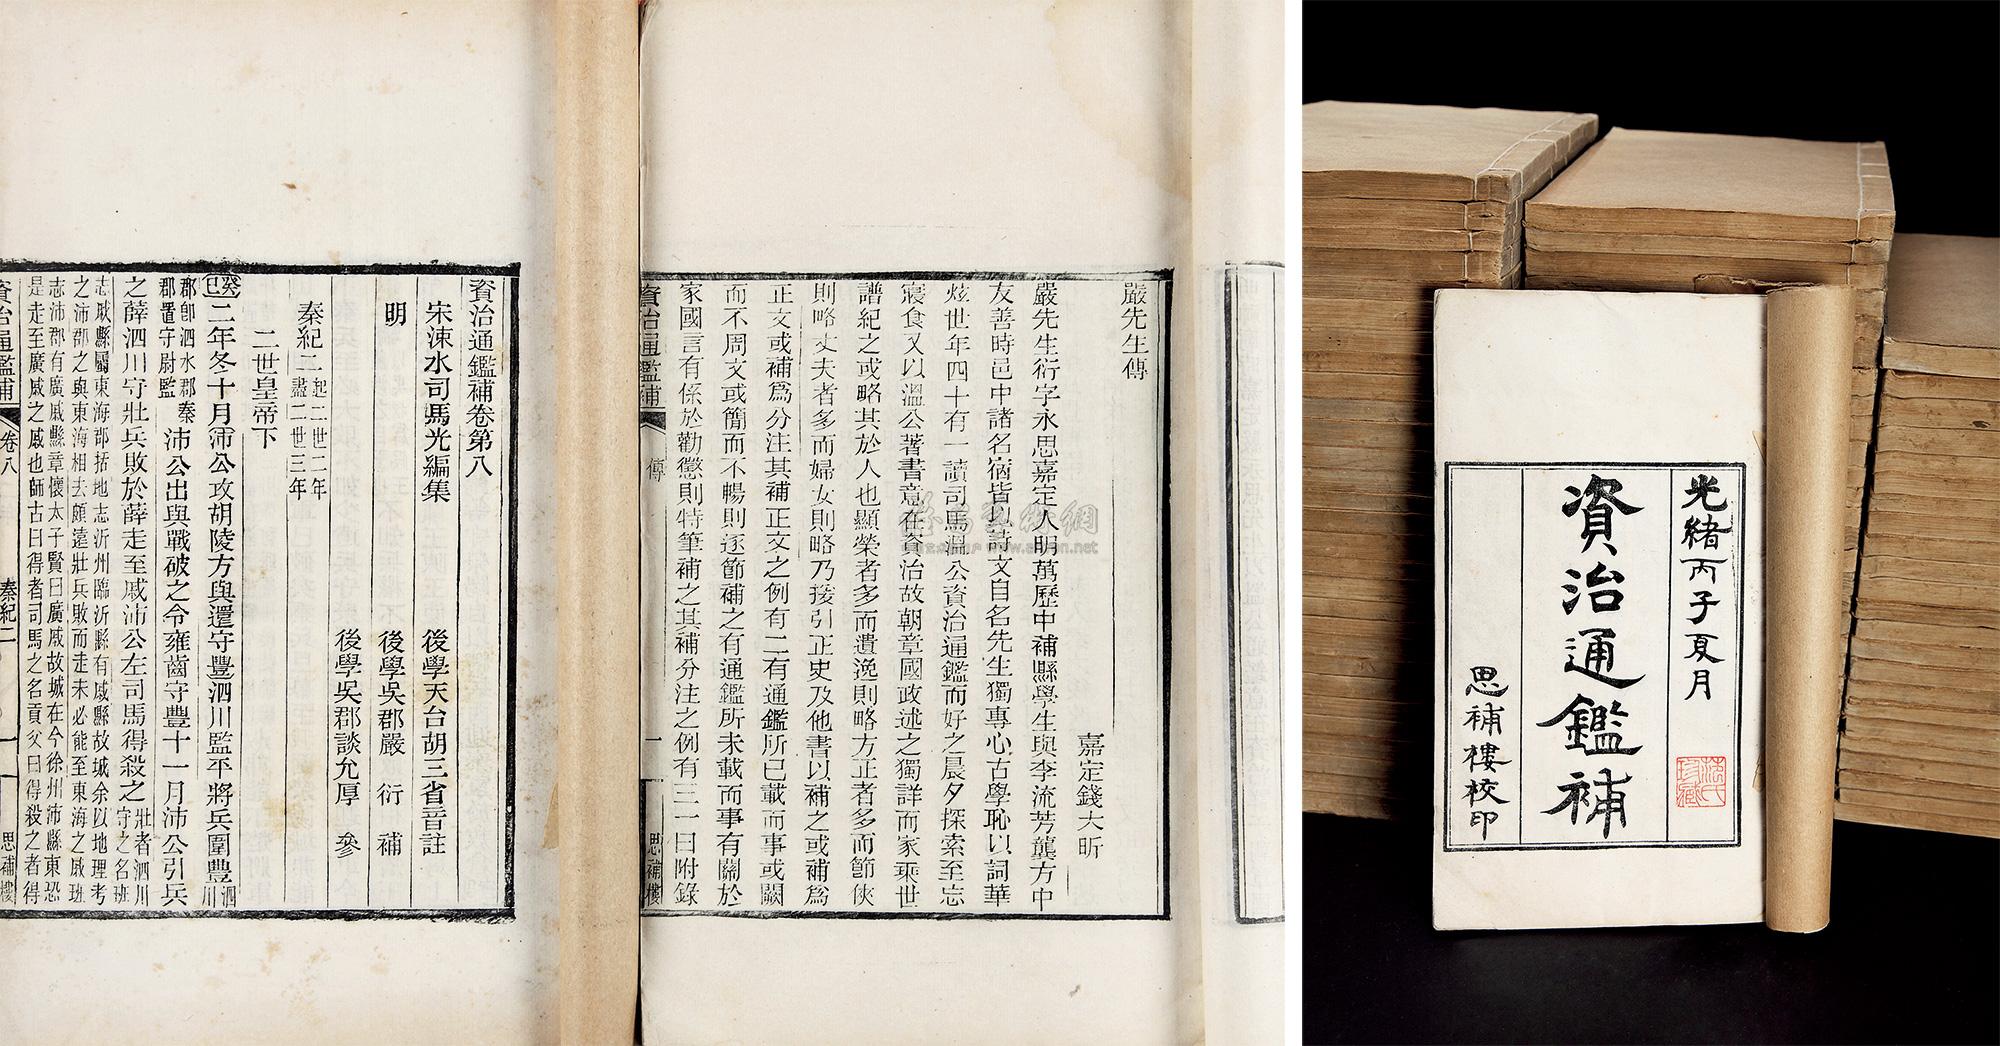 光緒丙子夏月
資治通鑑補
思補樓校印
嚴先生傳
嘉定錢大昕
嚴先生衍字永思嘉定人明萬歷中補縣學生與李流芳龔方中
友善時邑中諸名宿皆以詩文自名先生獨專心古學恥以詞華
炫世年四十有一讀司馬溫公資治通鑑而好之晨夕探索至忘
寢食又以溫公著書意在資治故朝章國政述之獨詳而家乘世
譜紀之或略其於人也顯榮者多而遺逸則略方正者多而節俠
則略丈夫者多而婦女則略乃援引正史及他書以補之或補為
正文或補為分注其補正文之例有二有通鑑所已載而事或闕
而不周文或簡而不暢則逐節補之有通鑑所未載而事有關於
家國言有係於勸懲則特筆補之其補分注之例有三一曰附錄
資治通鑑補 傳 一 思補樓
資治通鑑補卷第八
宋涑水司馬光編集 後學天台胡三省音註
明 後學吳郡嚴衍補
後學吳郡談允厚參
秦紀二 起二世二年盡二世三年
二世皇帝下
癸巳二年冬十月沛公攻胡陵方與還守豐泗川監平將兵圍豐 泗川
郡卽泗水郡秦郡置守尉監 沛公出與戰破之令雍齒守豐十一月沛公引兵
之薛泗川守壯兵敗於薛走至戚沛公左司馬得殺之 壯者泗川守之名班
志戚縣屬東海郡括地志沂州臨沂縣有戚縣故城余以地理考
之沛郡之與東海相去頗遠壯兵敗而走未必能至東海之戚班
志沛郡有廣戚縣章懷太子賢曰廣戚故城在今徐州沛縣東恐
是走至廣戚之戚也師古曰得者司馬之名貢父曰得殺之者得
資治通鑑補 卷八 秦紀二 一 思補樓